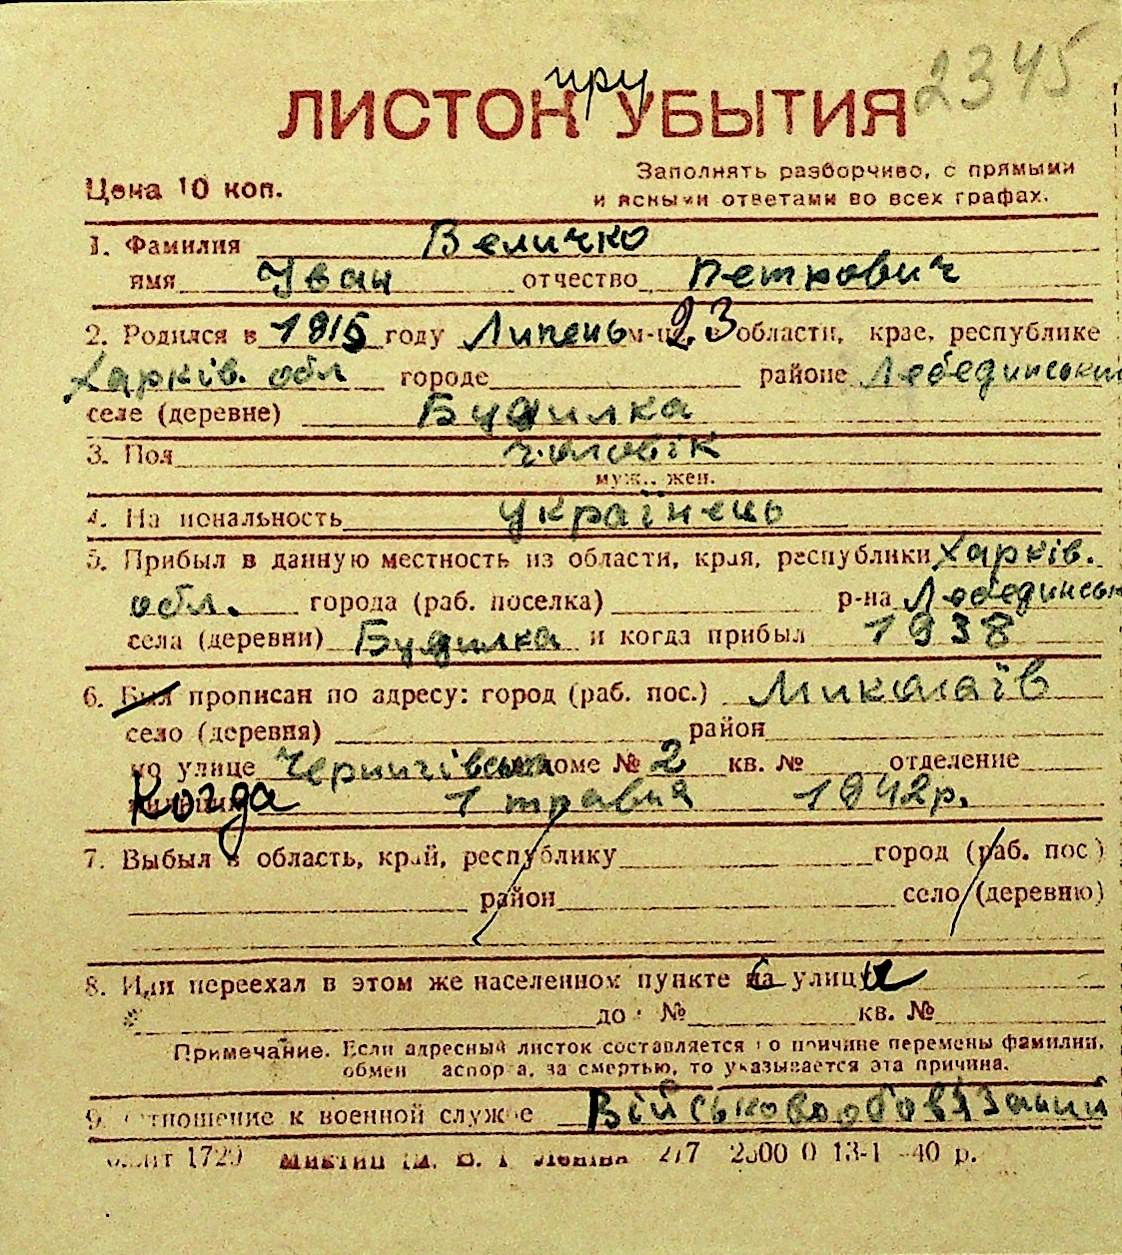 2345
при
ЛИСТОК УБЫТИЯ
Цена 10 коп.
Заполнять разборчиво, с прямыми
и ясными ответами во всех графах.
1. Фамилия Величко
имя Іван отчество Петрович
2. Родился в 1915 году Липень м-це 23 области, крае, республике
Харків. обл городе районе Лебединський
селе (деревне) Будилка
3. Пол чоловік
муж., жен.
4. Национальность українець
5. Прибыл в данную местность из области, края, республики Харків.
обл. города (раб. поселка) р-на Лебединськ
села (деревни) Будилка и когда прибыл 1938
6. Был прописан по адресу: город (раб. пос.) Миколаїв
село (деревня) район
по улице Чернигівська доме № 2 кв. № отделение
Когда 1 травня 1942р.
7. Выбыл в область, край, республику город (раб. пос.)
район село (деревню)
8. Или переехал в этом же населенном пункте с улицы
до № кв. №
Примечание. Если адресный листок составляется по причине перемены фамилии,
обмен паспорта, за смертью, то указывается эта причина.
9. Отношение к военной службе Військовообов'язаний
1729 2500 0 13-1 -40 р.